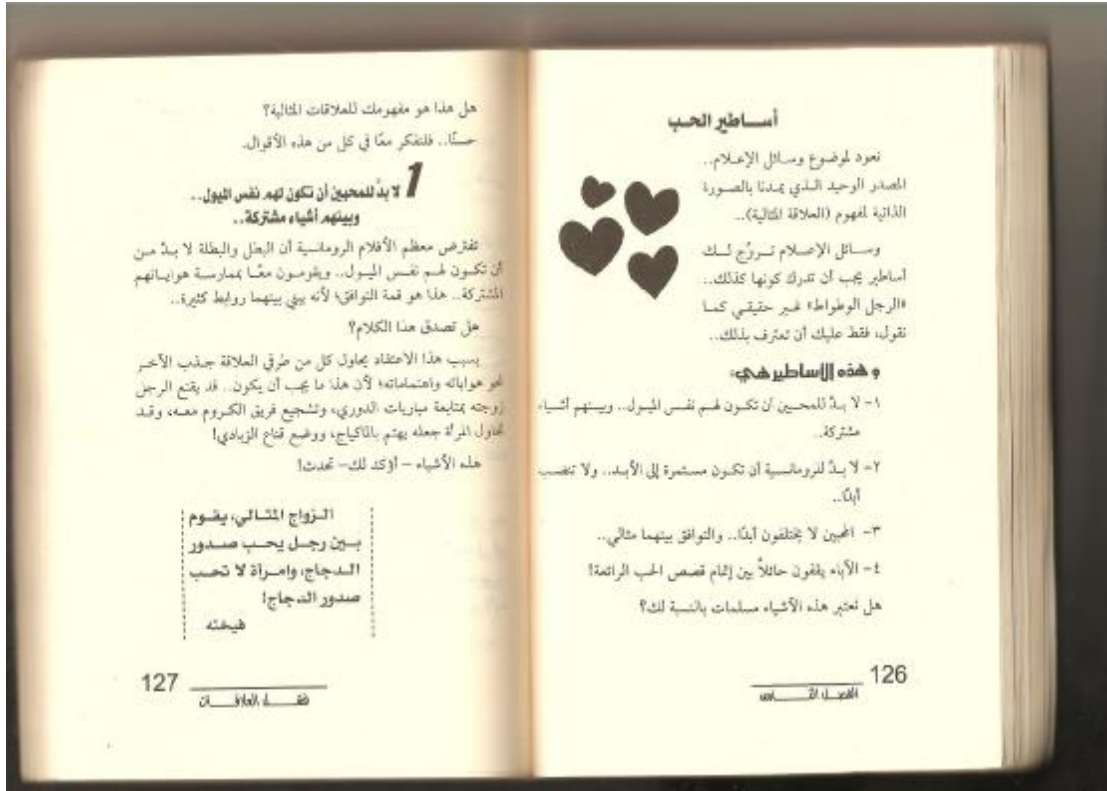 أساطير الحب
نعود لموضوع وسائل الإعلام..
المصدر الوحيد الذي يمدنا بالصورة
الذاتية لمفهوم (العلاقة المثالية)..
وسائل الإعلام تروّج لك
أساطير يجب أن تدرك كونها كذلك..
«الرجل الوطواط» غير حقيقي كما
نقول، فقط عليك أن تعترف بذلك..
وهذه الأساطير هي:
١- لا بدّ للمحبين أن تكون لهم نفس الميول.. وبينهم أشياء
مشتركة..
٢- لا بدّ للرومانسية أن تكون مستمرة إلى الأبد.. ولا تنضب
أبدًا..
٣- المحبين لا يختلفون أبدًا.. والتوافق بينهما مثالي..
٤- الآباء يقفون حائلاً بين إتمام قصص الحب الرائعة!
هل تعتبر هذه الأشياء مسلمات بالنسبة لك؟
126
الفصل
هل هذا هو مفهومك للعلاقات المثالية؟
حسنًا.. فلنفكر معًا في كل من هذه الأقوال.
1 لا بدّ للمحبين أن تكون لهم نفس الميول..
وبينهم أشياء مشتركة..
تفترض معظم الأفلام الرومانسية أن البطل والبطلة لا بدّ من
أن تكون لهم نفس الميول.. ويقومون معًا بممارسة هواياتهم
المشتركة.. هذا هو قمة التوافق؛ لأنه يبني بينهما روابط كثيرة..
هل تصدق هذا الكلام؟
بسبب هذا الاعتقاد يحاول كل من طرفي العلاقة جذب الآخر
نحو هواياته واهتماماته؛ لأن هذا ما يجب أن يكون.. قد يقنع الرجل
زوجته بمتابعة مباريات الدوري، وتشجيع فريق الكروم معه، وقد
تحاول المرأة جعله يهتم بالماكياج، ووضع قناع الزبادي!
هذه الأشياء – أؤكد لك– تحدث!
الزواج المثالي، يقوم
بين رجل يحب صدور
الدجاج، وامرأة لا تحب
صدور الدجاج!
فيخته
127
فقه العلاقات